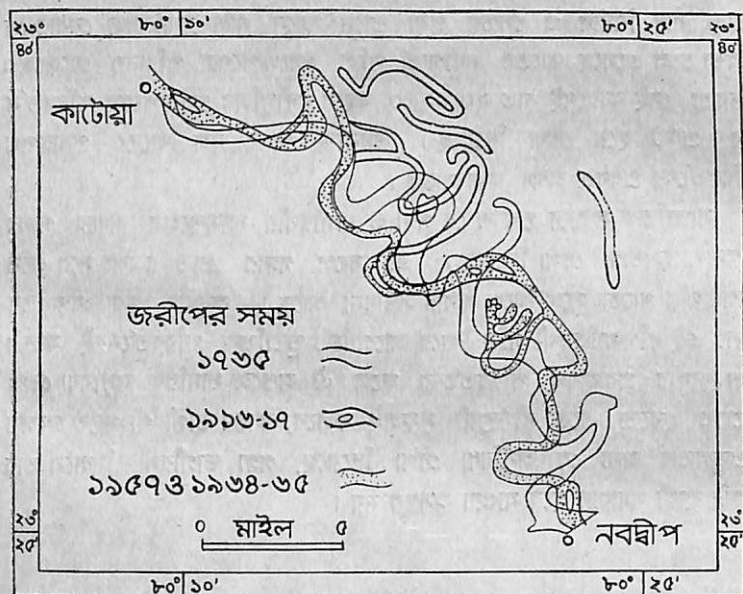 ২৩° ৮০° ১০' ৮০° ২৫' ২৩°
৪০' ৪০'
কাটোয়া
জরীপের সময়
১৭৬৫
১৯১৬-১৭
১৯৫৭ ও ১৯৬৪-৬৫
০ মাইল ৫
নবদ্বীপ
২৩° ২৩°
২৫' ২৫'
৮০° ১০' ৮০° ২৫'